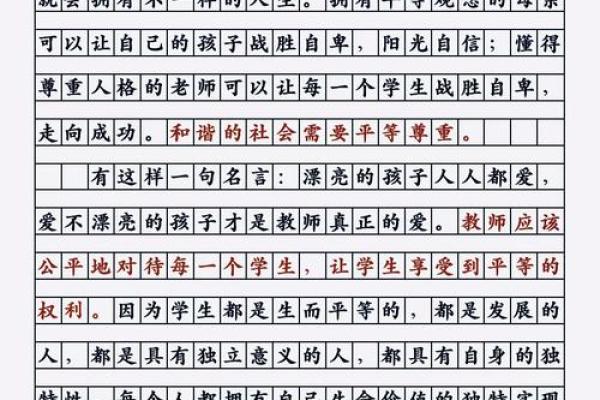 就会拥有不一样的人生。拥有平等观念的母亲
可以让自己的孩子战胜自卑，阳光自信；懂得
尊重人格的老师可以让每一个学生战胜自卑，
走向成功。和谐的社会需要平等尊重。
有这样一句名言：漂亮的孩子人人都爱，
爱不漂亮的孩子才是教师真正的爱。教师应该
公平地对待每一个学生，让学生享受到平等的
权利。因为学生都是生而平等的，都是发展的
人，都是具有独立意义的人，都具有自身的独
特性，每个人都拥有自己生命价值的独特实现